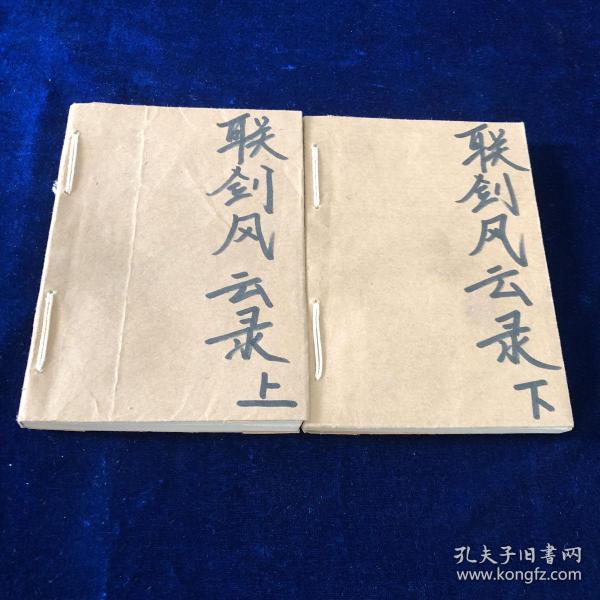 联剑风云录
上
联剑风云录
下
孔夫子旧書网
www.kongfz.com